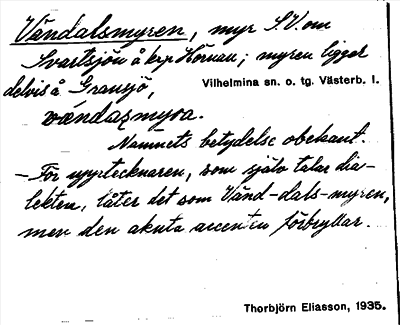 Vändalsmyren, myr S.V. om
Svartsjön å krp Hornau; myren ligger
delvis å Gransjö, Vilhelmina sn. o. tg. Västerb. l.
vændaʒmyra.
Namnets betydelse obekant.
- För upptecknaren, som själv talar dia-
lekten, låter det som Vänd-dals-myren,
men den akuta accenten förbryllar.
Thorbjörn Eliasson, 1935.